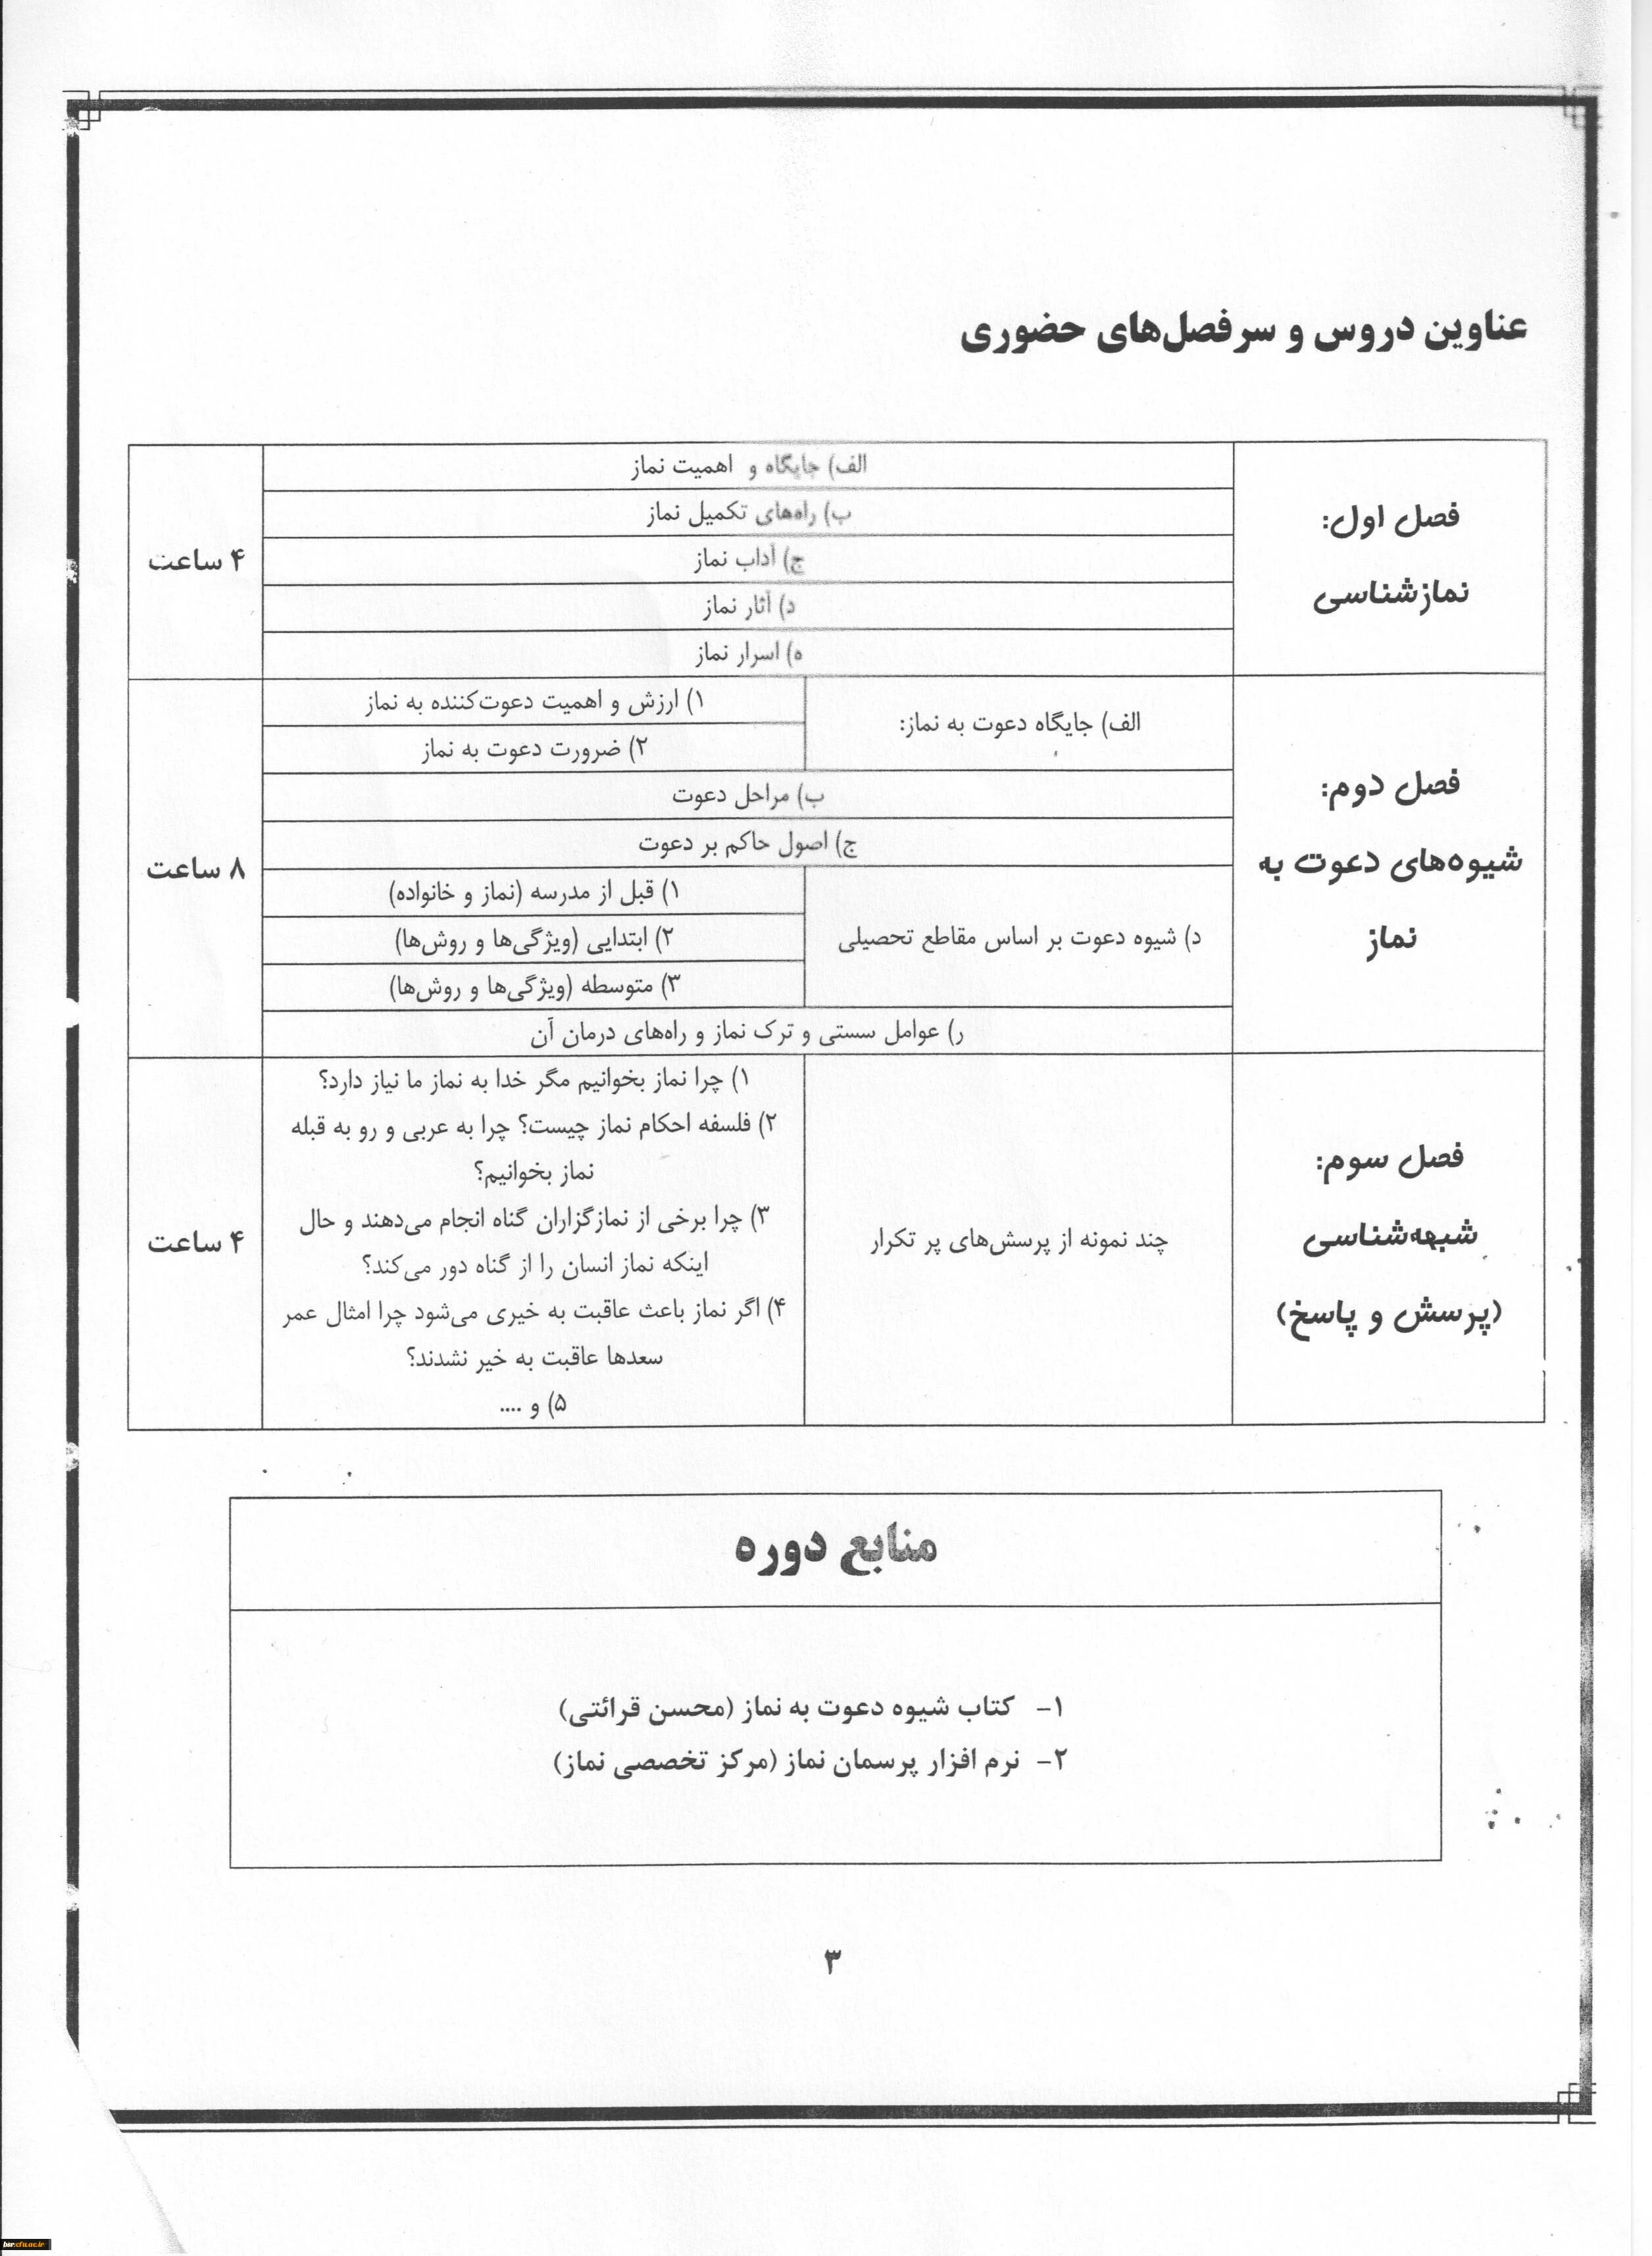 عناوین دروس و سرفصل‌های حضوری
فصل اول:
نمازشناسی
الف) جایگاه و اهمیت نماز
ب) راه‌های تکمیل نماز
ج) آداب نماز
د) آثار نماز
ه) اسرار نماز
۴ ساعت
فصل دوم:
شیوه‌های دعوت به
نماز
الف) جایگاه دعوت به نماز:
۱) ارزش و اهمیت دعوت‌کننده به نماز
۲) ضرورت دعوت به نماز
ب) مراحل دعوت
ج) اصول حاکم بر دعوت
د) شیوه دعوت بر اساس مقاطع تحصیلی
۱) قبل از مدرسه (نماز و خانواده)
۲) ابتدایی (ویژگی‌ها و روش‌ها)
۳) متوسطه (ویژگی‌ها و روش‌ها)
ر) عوامل سستی و ترک نماز و راه‌های درمان آن
۸ ساعت
فصل سوم:
شبهه‌شناسی
(پرسش و پاسخ)
چند نمونه از پرسش‌های پر تکرار
۱) چرا نماز بخوانیم مگر خدا به نماز ما نیاز دارد؟
۲) فلسفه احکام نماز چیست؟ چرا به عربی و رو به قبله
نماز بخوانیم؟
۳) چرا برخی از نمازگزاران گناه انجام می‌دهند و حال
اینکه نماز انسان را از گناه دور می‌کند؟
۴) اگر نماز باعث عاقبت به خیری می‌شود چرا امثال عمر
سعدها عاقبت به خیر نشدند؟
۵) و ....
۴ ساعت
منابع دوره
۱- کتاب شیوه دعوت به نماز (محسن قرائتی)
۲- نرم افزار پرسمان نماز (مرکز تخصصی نماز)
۳
bsr.cfu.ac.ir